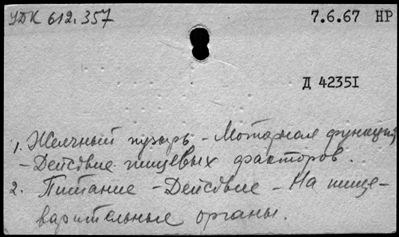 УДК 612.357 7.6.67 НР
Д 42351
1. Желчный пузырь - Моторная функция
- Действие пищевых факторов.
2. Питание - Действие - На пище-
варительные органы.